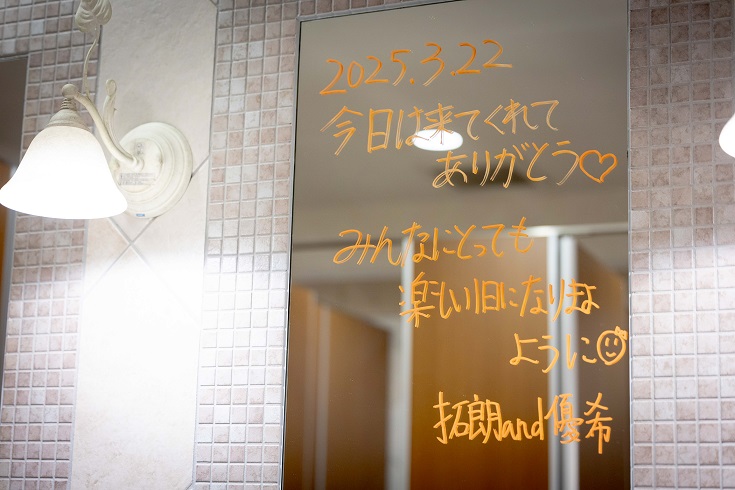 2025.3.22
今日は来てくれて
ありがとう♡
みんなにとっても
楽しい1日になりまよ
ように
拓朗and優希